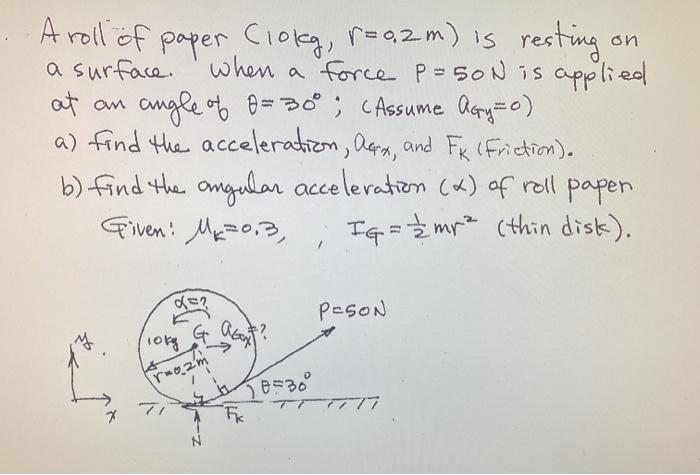 A roll of paper (10kg, r=0.2m) is resting on
a surface. When a force P=50N is applied
at an angle of θ=30°; (Assume aGy=0)
a) find the acceleration, aGx, and FK (Friction).
b) find the angular acceleration (α) of roll paper
Given: MK=0.3, ; IG=½mr² (thin disk).
α=?
P=50N
y
10kg
G
aGx=?
r=0.2m
θ=30°
x
FK
N